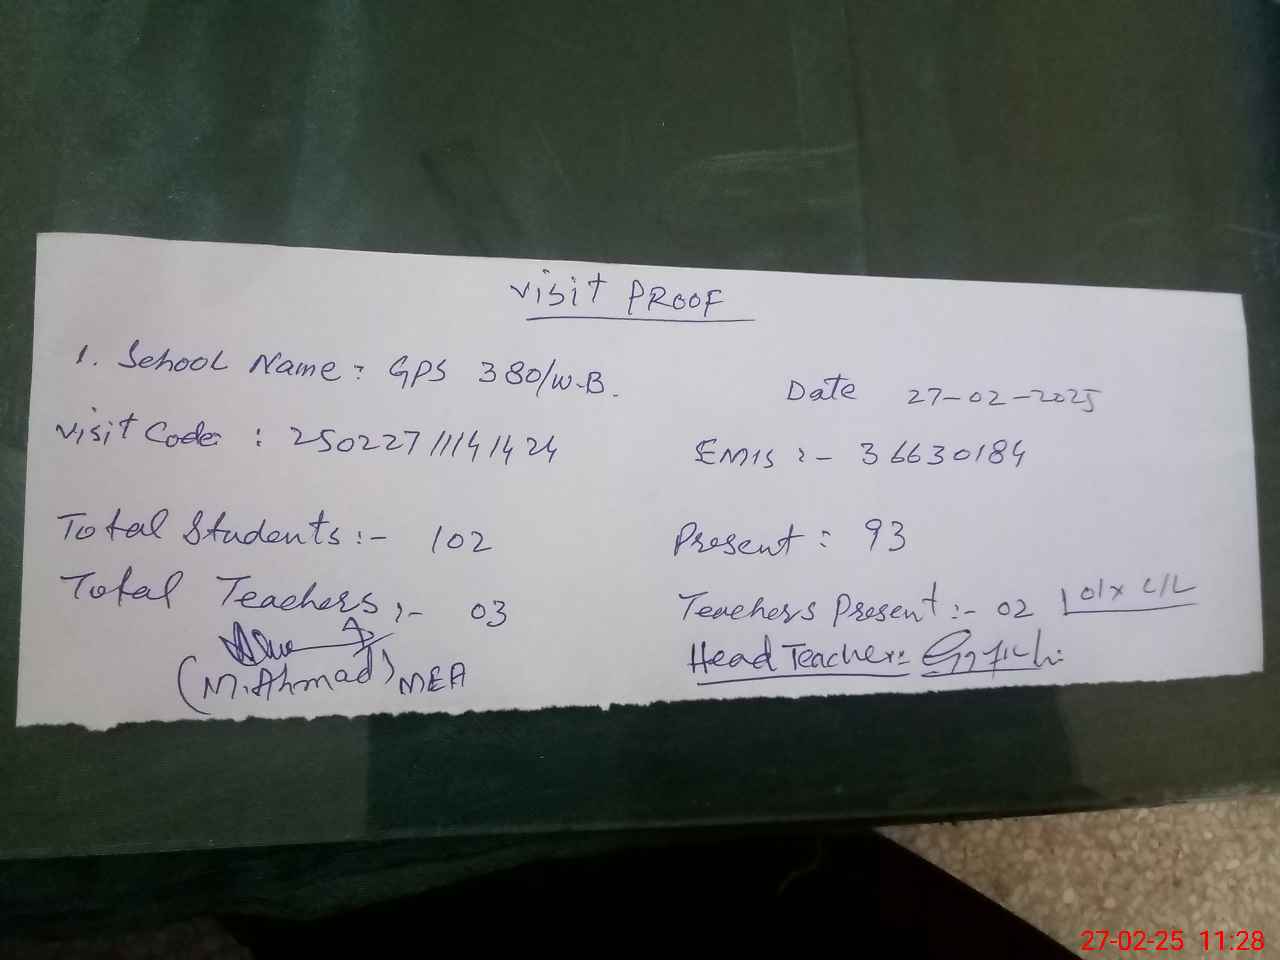 Visit PROOF
1. School Name : GPS 380/W-B.
Date 27-02-2025
Visit Code : 250227111141424
EMIS :- 36630184
Total Students :- 102
Present : 93
Total Teachers :- 03
Teachers Present :- 02 01x C/L
(M.Ahmad) MEA
Head Teacher:
27-02-25 11:28